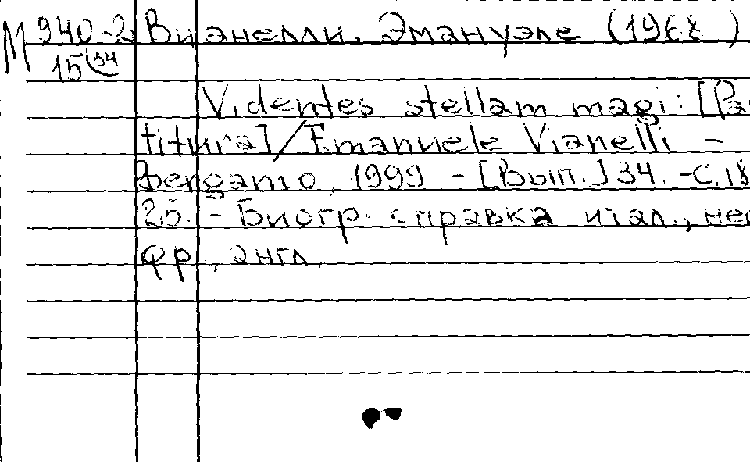 М 940-2 Вианелли, Эмануэле (1968 )
15(34
Videntes stellam magi: [Par
titura] / Emanuele Vianelli -
Bergamo, 1999 - [Вып.] 34. - С. 18
25. - Биогр. справка итал., нем
фр., англ.